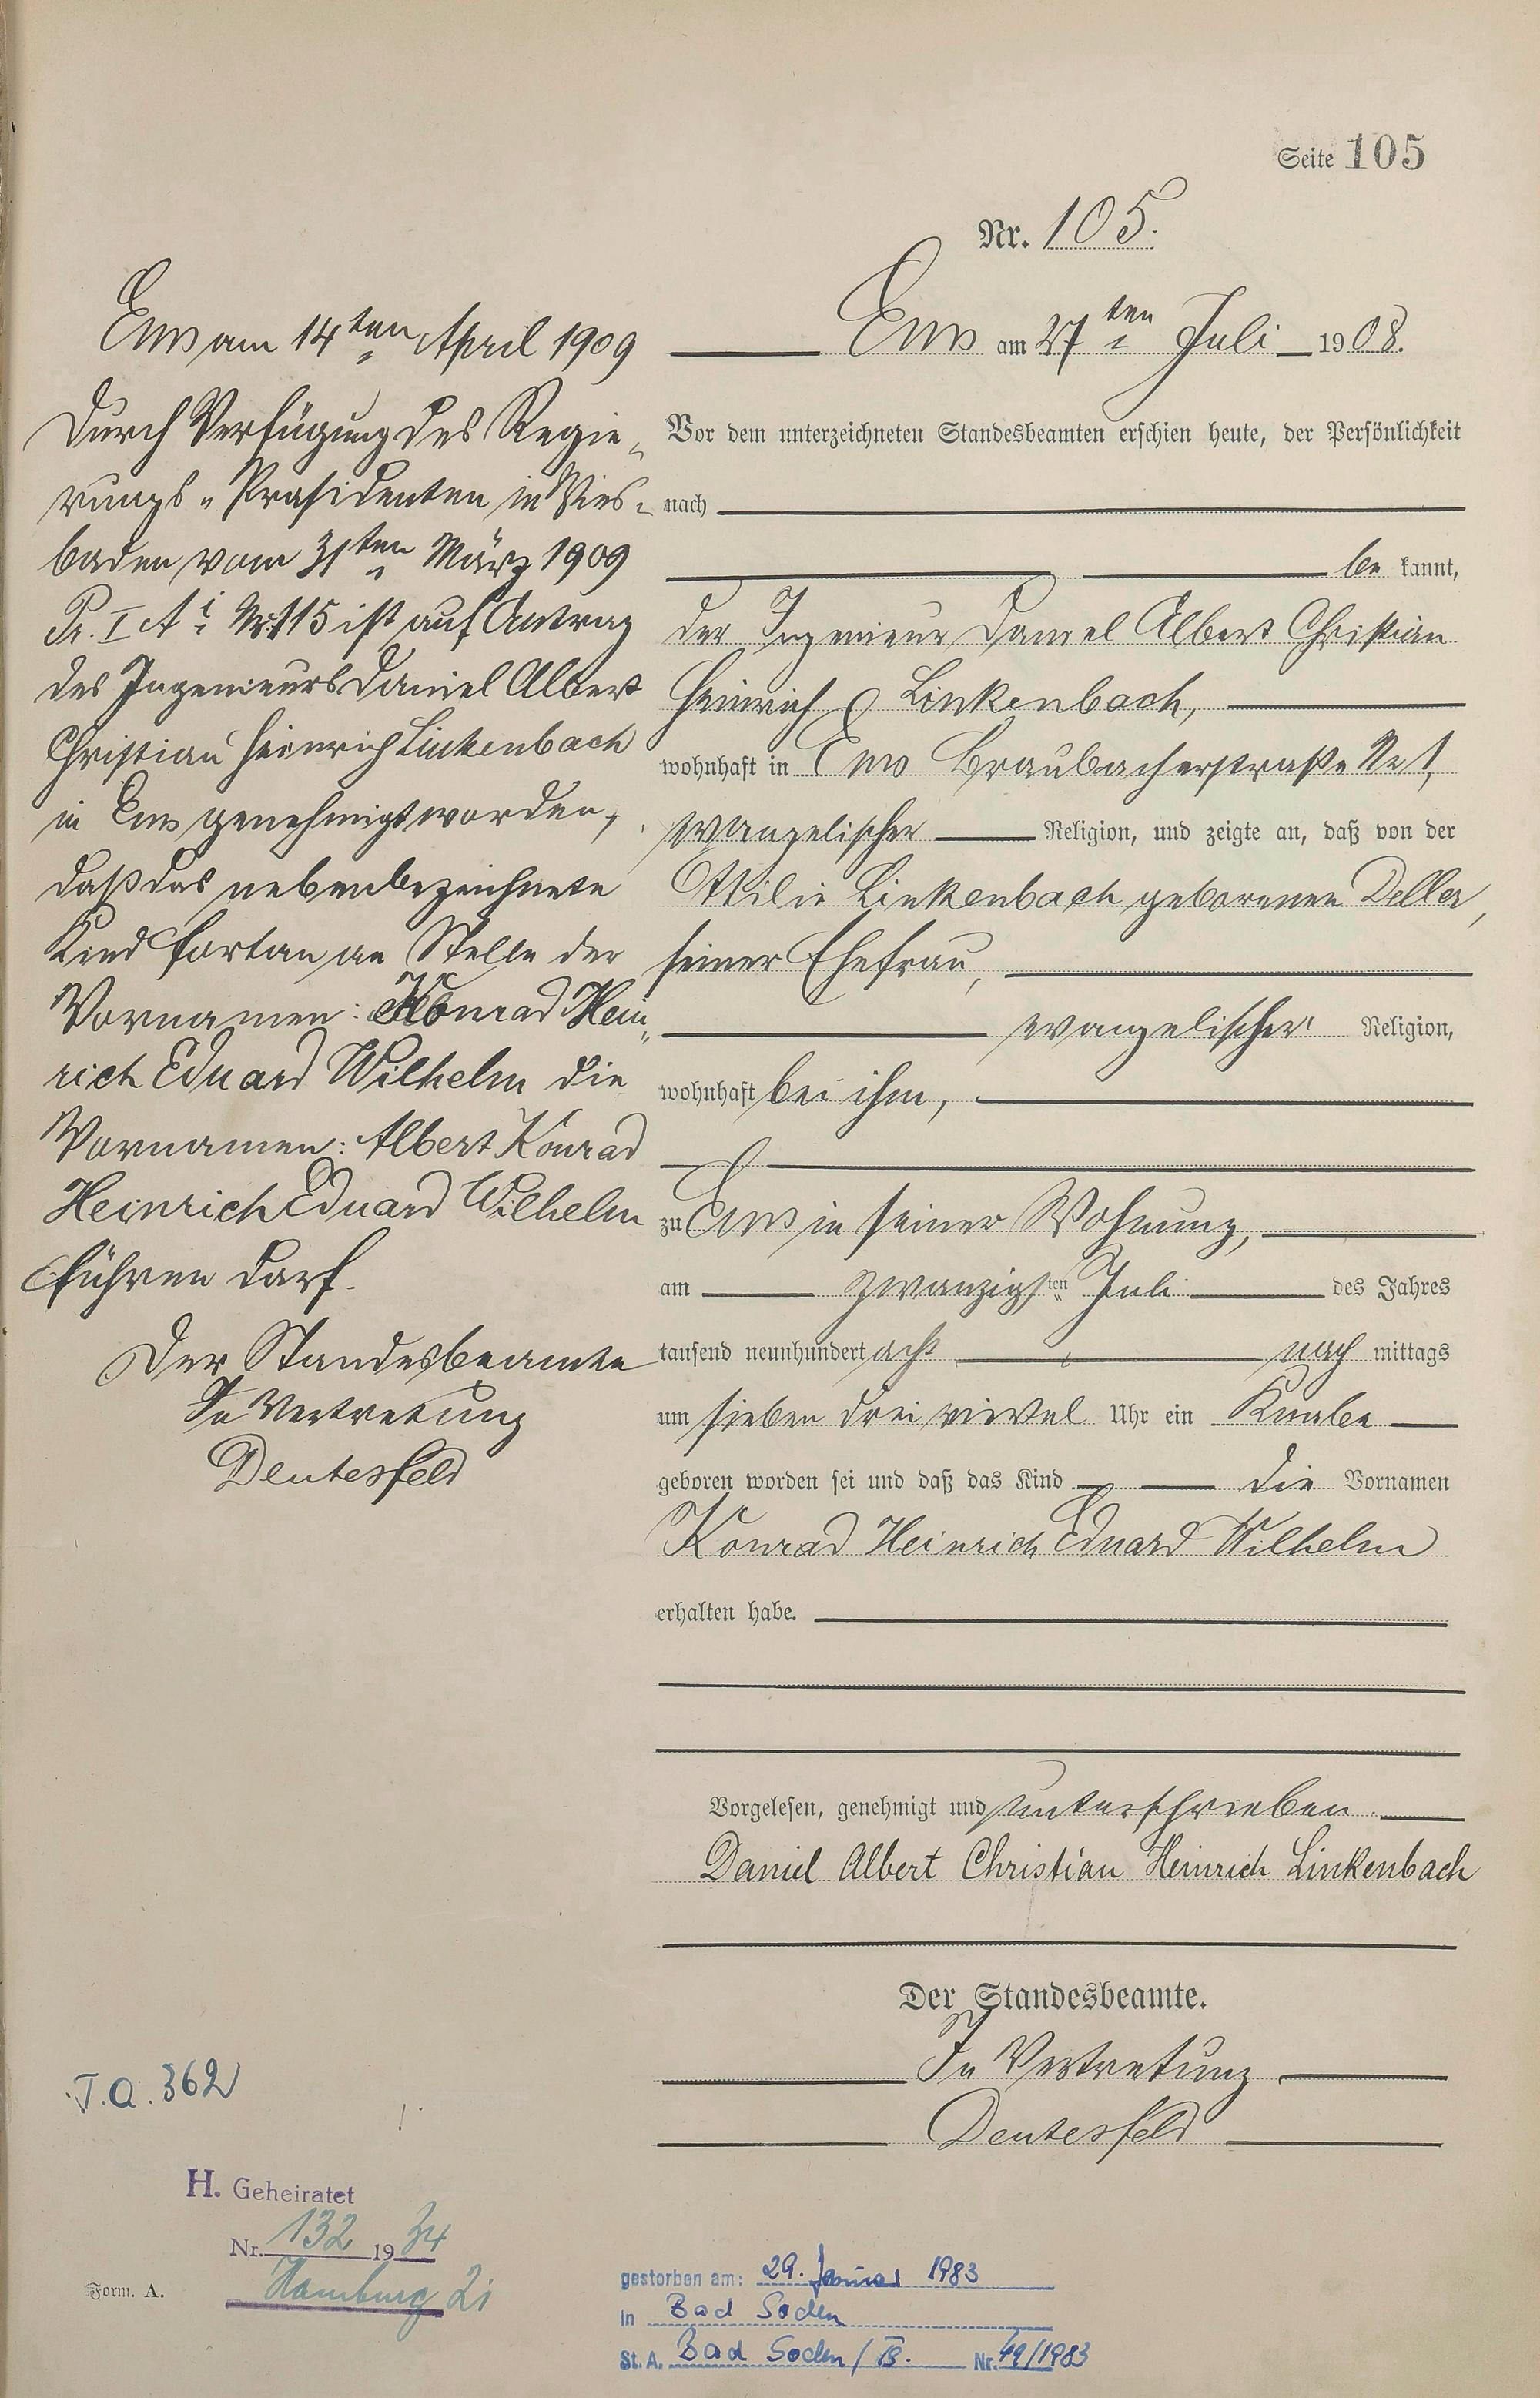 Seite 105
Nr. 105.
Ems am 27ten Juli 1908.
Vor dem unterzeichneten Standesbeamten erschien heute, der Persönlichkeit
nach
be kannt,
der Ingenieur Daniel Albert Christian
Heinrich Linkenbach,
wohnhaft in Ems Braubacherstraße Nr 1,
evangelischer Religion, und zeigte an, daß von der
Ottilie Linkenbach geborenen Deller,
seiner Ehefrau,
evangelischer Religion,
wohnhaft bei ihm,
zu Ems in seiner Wohnung,
am zwanzigsten Juli des Jahres
tausend neunhundert acht nach mittags
um sieben drei viertel Uhr ein Knabe
geboren worden sei und daß das Kind die Vornamen
Konrad Heinrich Eduard Wilhelm
erhalten habe.
Vorgelesen, genehmigt und unterschrieben.
Daniel Albert Christian Heinrich Linkenbach
Der Standesbeamte.
In Vertretung
Deutesfeld
Ems am 14ten April 1909
Durch Verfügung des Regie-
rungs-Präsidenten in Wies-
baden vom 31ten März 1909
Pr. I A i Nr. 115 ist auf Antrag
des Ingenieurs Daniel Albert
Christian Heinrich Linkenbach
in Ems genehmigt worden,
daß das nebenbezeichnete
Kind fortan an Stelle der
Vornamen: Konrad Hein-
rich Eduard Wilhelm die
Vornamen: Albert Konrad
Heinrich Eduard Wilhelm
führen darf.
Der Standesbeamte
In Vertretung
Deutesfeld
T.A. 362
H. Geheiratet
Nr. 132 1934
Hamburg 2i
Form. A.
gestorben am: 29. Januar 1983
in Bad Soden
St. A. Bad Soden / Nr. 49/1983